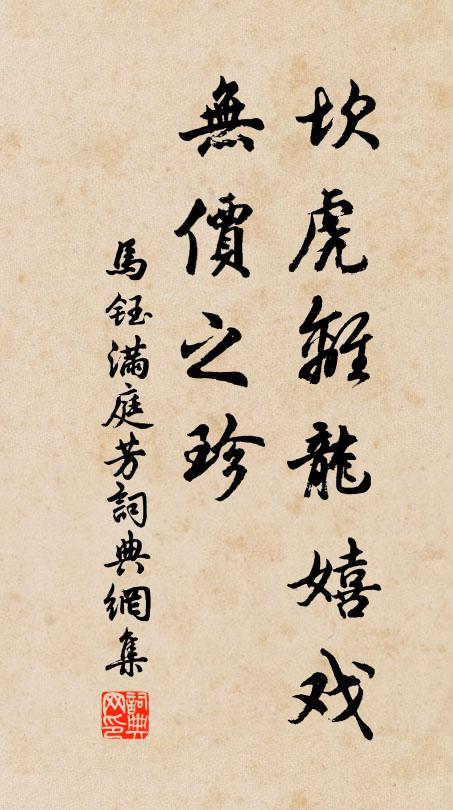 坎虎離龍嬉戏
無價之珍
馬鈺滿庭芳詞典網集
詞典网印